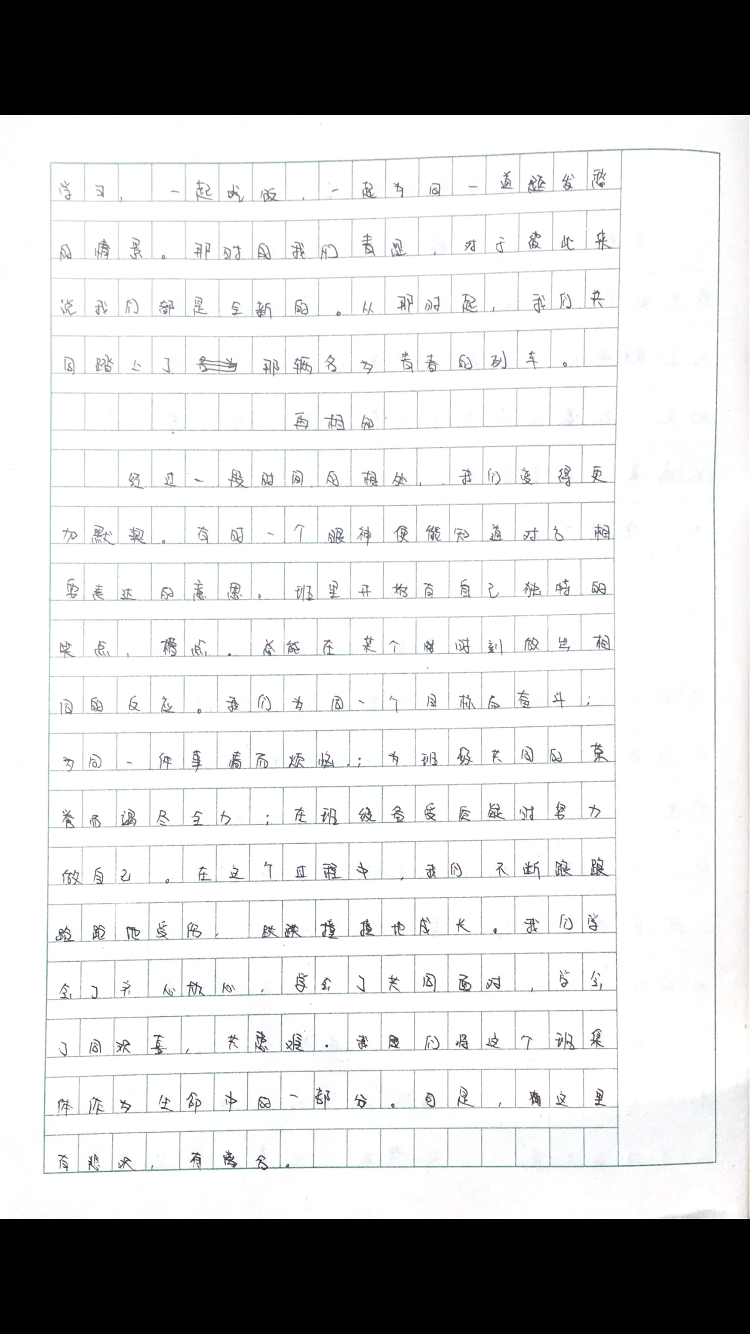 学习，一起吃饭，一起为同一道题发愁
的情景。那时的我们青涩，对于彼此来
说我们都是全新的。从那时起，我们共
同踏上了那辆名为青春的列车。
再相知
经过一段时间的相处，我们变得更
加默契。有时一个眼神便能知道对方想
要表达的意思。班里开始有自己独特的
笑点，槽点。总能在某个时刻做出相
同的反应。我们为同一个目标而奋斗；
为同一件事情而烦恼；为班级共同的荣
誉而竭尽全力；在班级备受质疑时努力
做自己。在这个过程中，我们不断踉踉
跄跄地受伤，跌跌撞撞地成长。我们学
会了齐心协心，学会了共同面对，学会
了同欢喜，共患难。我们将这个班集
体作为生命中的一部分。自是，这里
有悲欢，有离合。